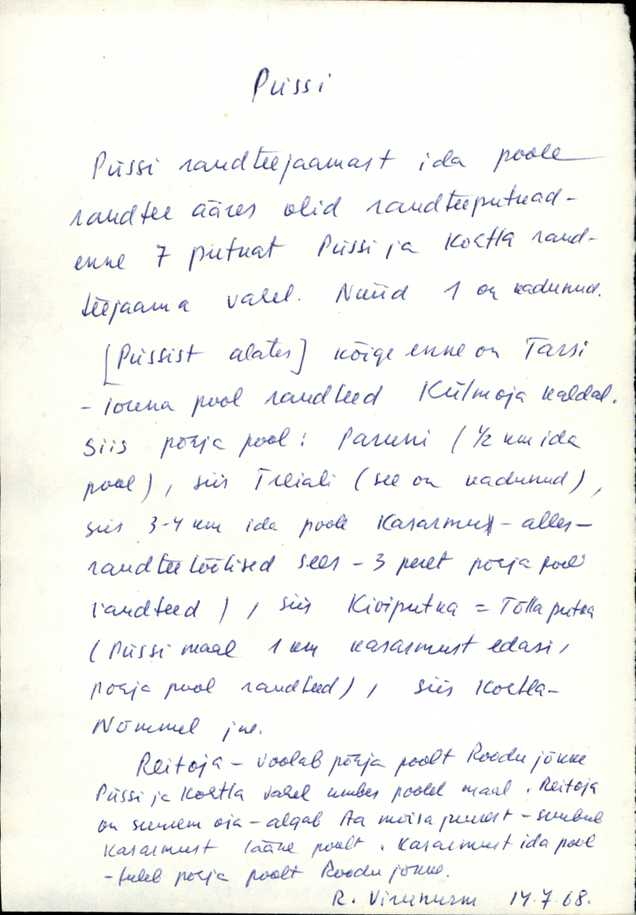 Püssi
Püssi raudteejaamast ida poole
raudtee ääres olid raudteeputkad -
enne 7 putkat Püssi ja Kohtla raud-
teejaama vahel. Nüüd 1 on kadunud.
[Püssist alates] kõige enne on Tarsi
- lõuna pool raudteed Külmoja kaldal.
Siis põhja pool: Paruni (1/2 km ida
pool), siis Treiali (see on kadunud),
siis 3-4 km ida poole Kasarmu - alles -
raudteetöölised sees - 3 peret põhja pool
raudteed), siis Kiviputka = Tõllaputka
(Püssi maal 1 km kasarmust edasi,
põhja pool raudteed), siis Kohtla-
Nõmmel jne.
Reitoja - voolab põhja poolt Roodu jõkke
Püssi ja Kohtla vahel umbes poolel maal. Reitoja
on suurem oja - algab Aa mõisa juurest - suubub
Kasarmust lääne poolt. Kasarmust ida pool
- tuleb põhja poolt Roodu jõkke.
R. Virunurm 14.7.68.